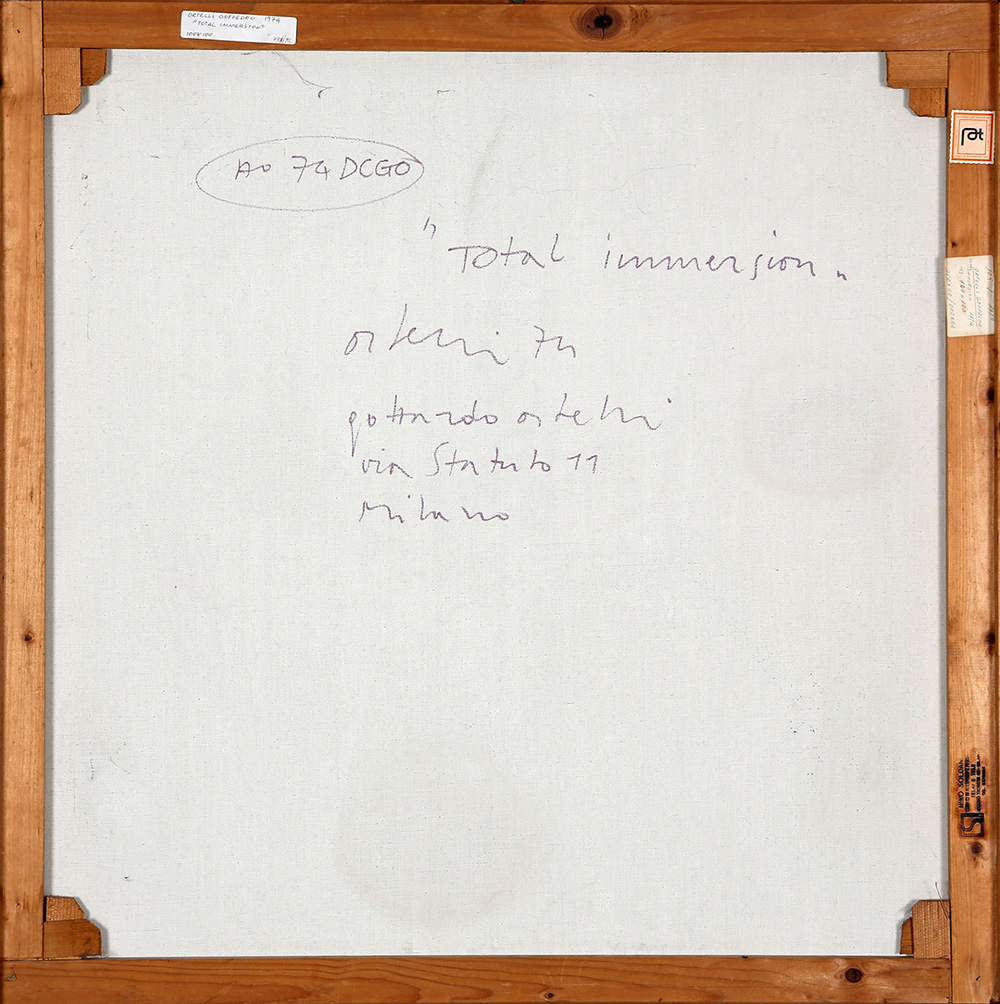 ORTELLI GOFFEDRO 1974
"TOTAL IMMERSION"
100X100
AO 74 DCGO
"Total immersion"
ortelli 74
gottardo ortelli
via Statuto 11
Milano
NINO SOLDAN